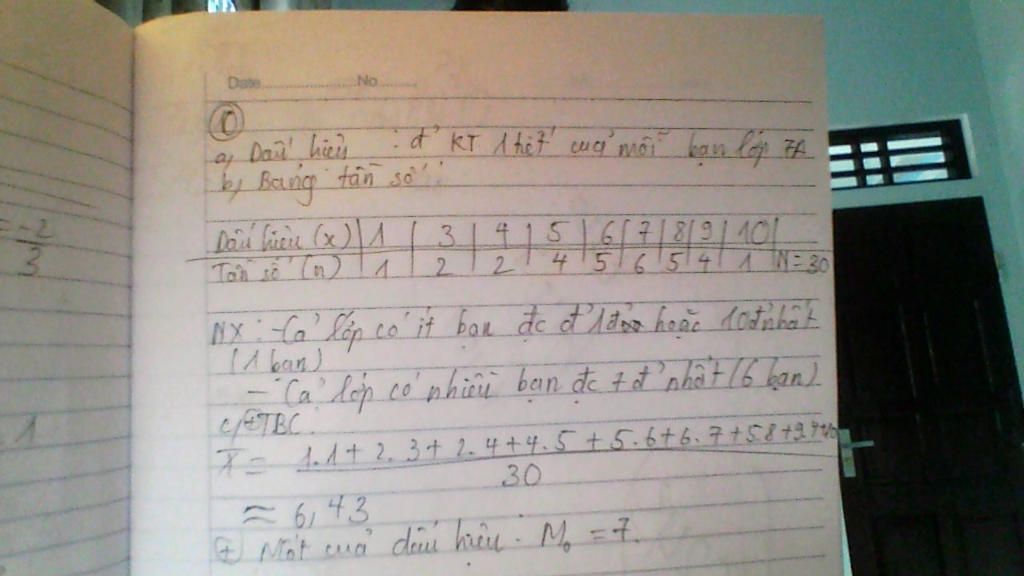 = -2
3
1
Date No
①
a, Dấu hiệu : đ' KT 1 tiết của mỗi bạn lớp 7A
b, Bảng tần số :
Dấu hiệu (x) | 1 | 3 | 4 | 5 | 6 | 7 | 8 | 9 | 10 |
Tần số (n) | 1 | 2 | 2 | 4 | 5 | 6 | 5 | 4 | 1 | N = 30
NX : - Cả lớp có ít bạn đc đ' 1 hoặc 10 đ' nhất
(1 bạn)
- Cả lớp có nhiều bạn đc 7 đ' nhất (6 bạn)
c, + TBC.
X = 1.1 + 2.3 + 2.4 + 4.5 + 5.6 + 6.7 + 5.8 + 9.4 + 10
30
≈ 6,43
+ Mốt của dấu hiệu : M₀ = 7.